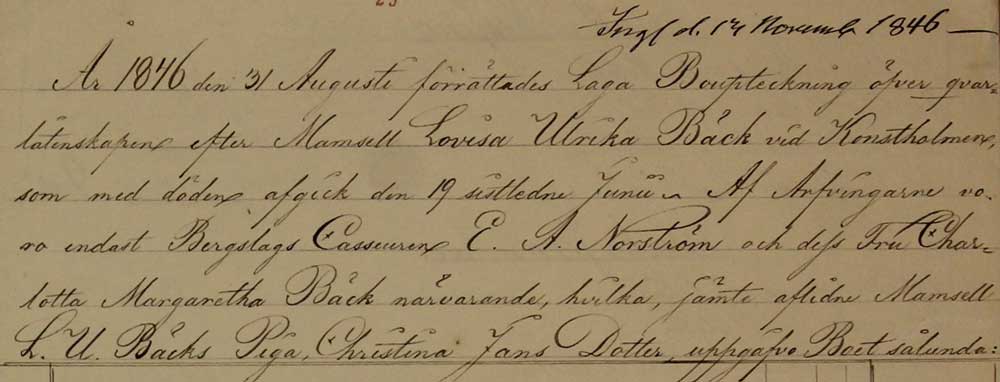 Ingf d. 14 Novemb 1846
År 1846 den 31 Augusti förrättades Laga Bouptekning öfver qvar=
låtenskapen efter Mamsell Lovisa Ulrika Bäck vid Konstholmen,
som med döden afgick den 19 sistledne Junii. Af Arfvingarne vo-
ro endast Bergslags Casseuren E. A. Norström och dess Fru Char=
lotta Margaretha Bäck närvarande, hvilka, jämte aflidne Mamsell
L. U. Bäcks Piga, Christina Jans Dotter, uppgåfvo Boet sålunda: